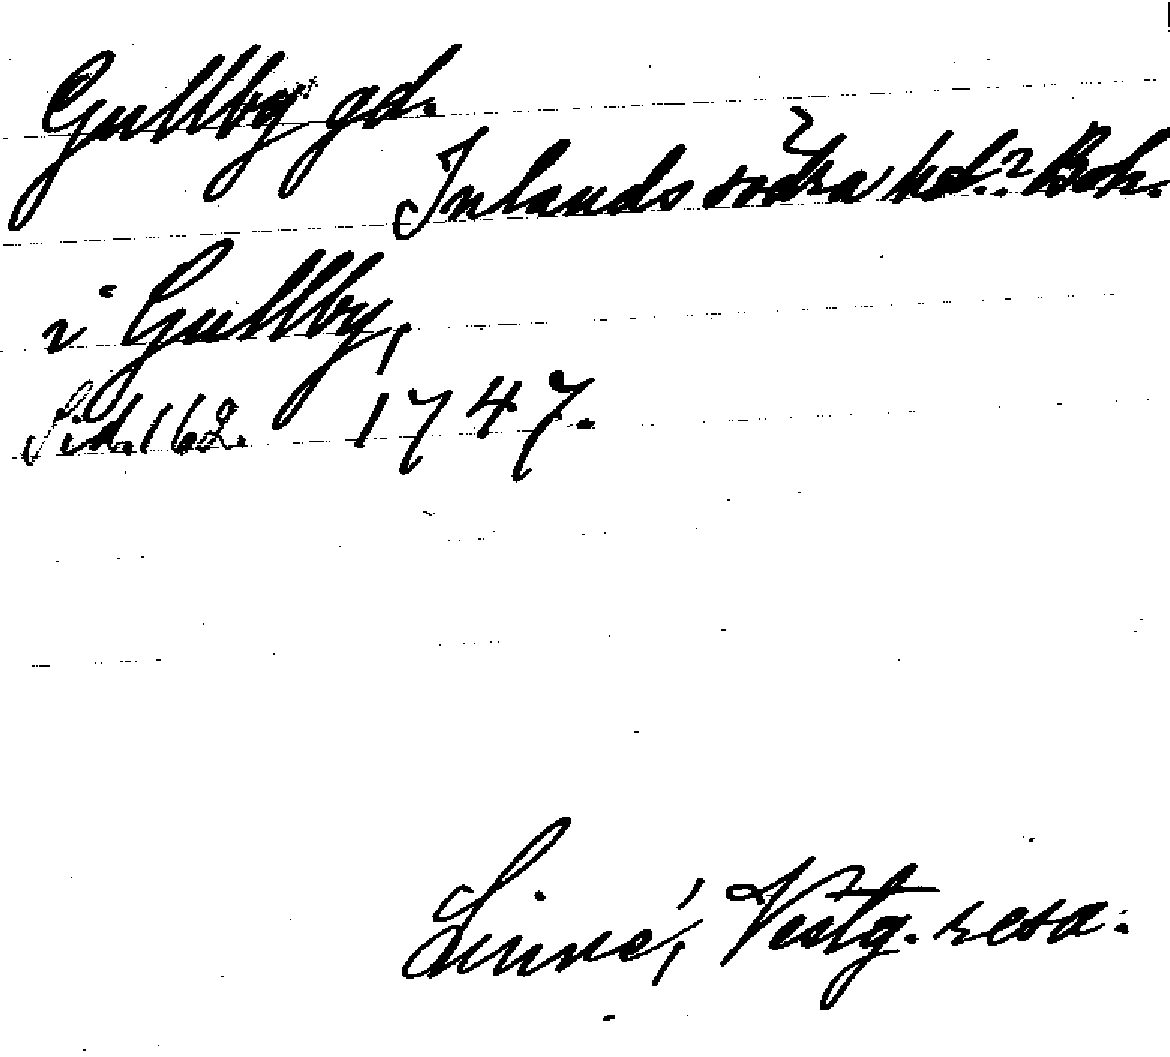 Gullby gd.
Inlands södra hd.? Boh.
i Gullby,
Sid. 162. 1747.
Linné, Vestg. resa.